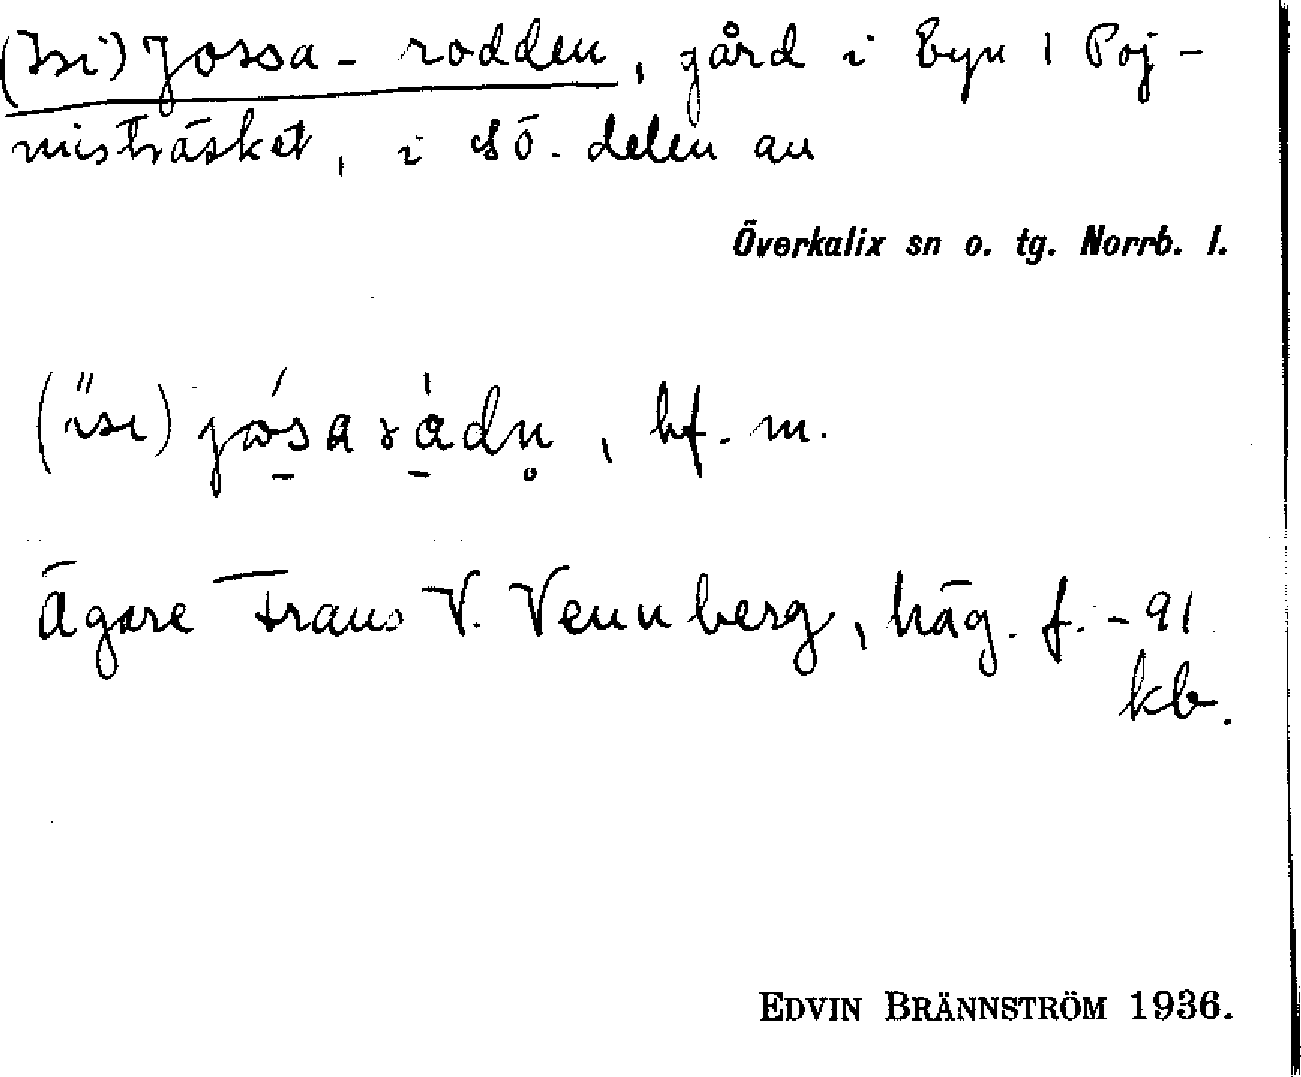 (Isi) Jossa-rodden, gård i byn 1 Poj-
misträsket, i sö. delen av
Överkalix sn o. tg. Norrb. l.
bf. m.
Ägare Frans V. Vennberg, häg. f. -91
kb.
EDVIN BRÄNNSTRÖM 1936.